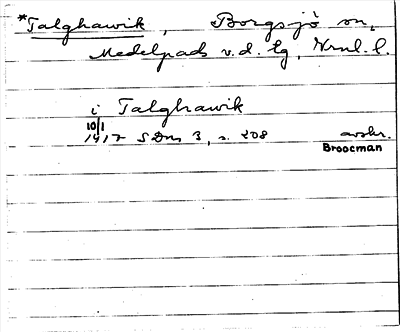 *Talghawik, Borgsjö sn,
Medelpads v. d. lg, Vrnl. l.
i Talghawik
10/1
1417 SDns 3, s. 208 avskr.
Broocman